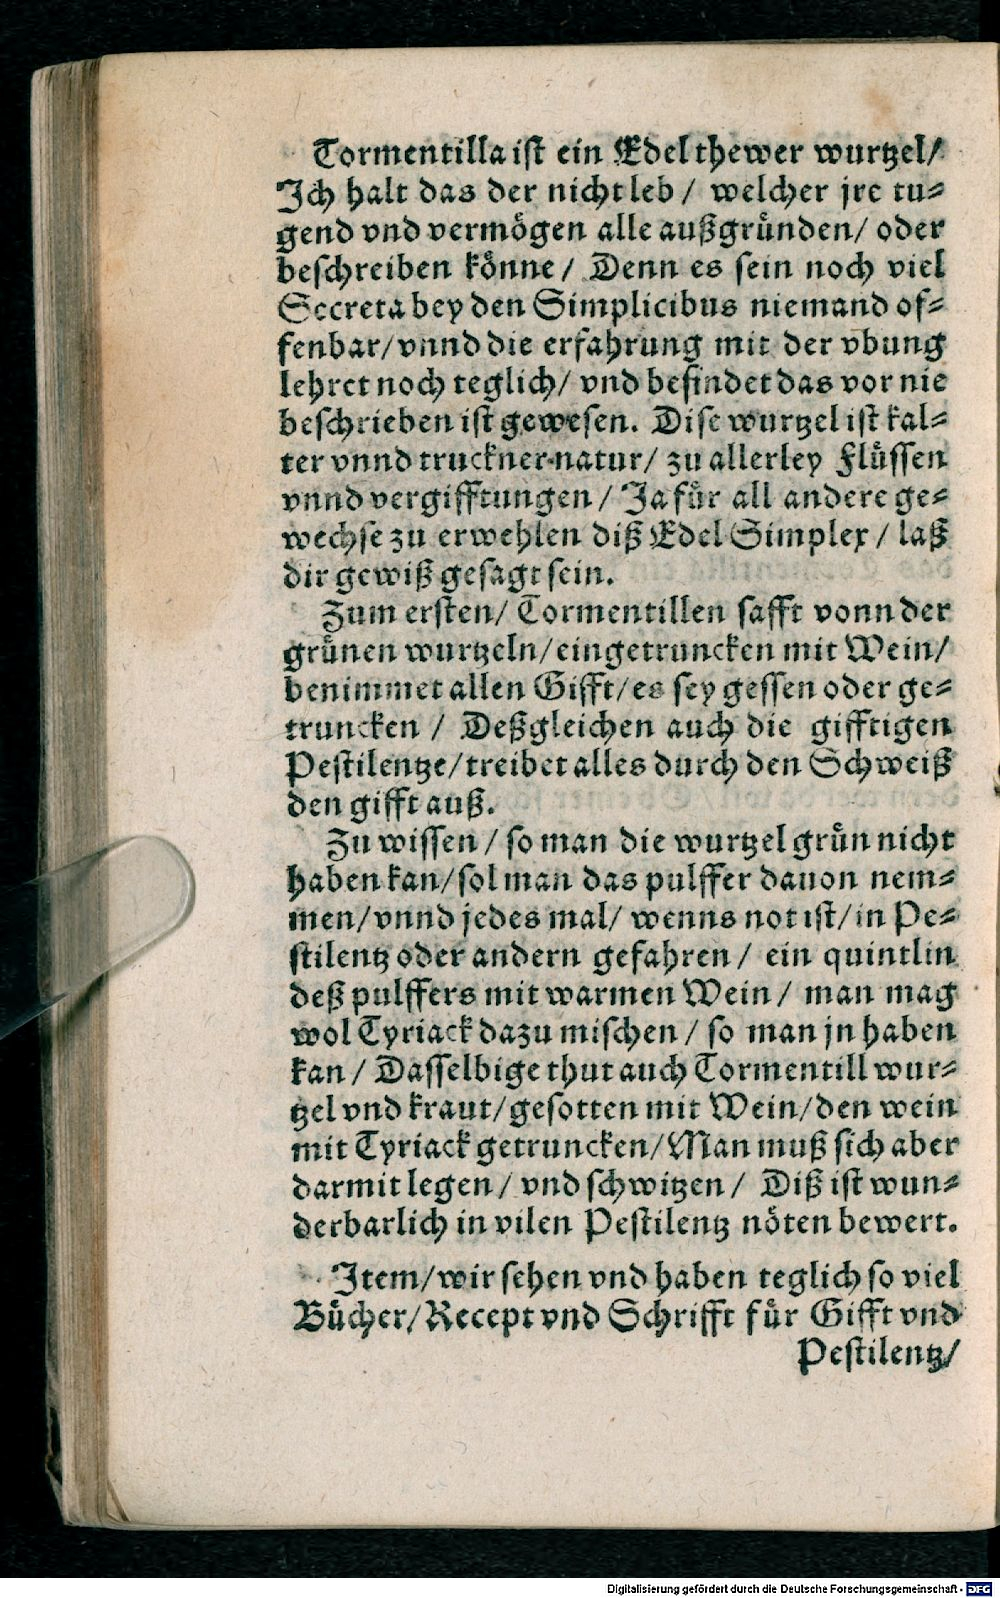 Tormentilla ist ein Edel thewer wurtzel/
Ich halt das der nicht leb/ welcher jre tu⸗
gend vnd vermögen alle außgründen/ oder
beschreiben könne/ Denn es sein noch viel
Secreta bey den Simplicibus niemand of⸗
fenbar/ vnnd die erfahrung mit der vbung
lehret noch teglich/ vnd befindet das vor nie
beschrieben ist gewesen. Dise wurtzel ist kal⸗
ter vnnd truckner natur/ zu allerley Flüssen
vnnd vergifftungen/ Ja für all andere ge⸗
wechse zu erwehlen diß Edel Simplex/ laß
dir gewiß gesagt sein.
Zum ersten/ Tormentillen safft vonn der
grünen wurtzeln/ eingetruncken mit Wein/
benimmet allen Gifft/ es sey gessen oder ge⸗
truncken/ Deßgleichen auch die gifftigen
Pestilentze/ treibet alles durch den Schweiß
den gifft auß.
Zu wissen/ so man die wurtzel grün nicht
haben kan/ sol man das pulffer dauon nem⸗
men/ vnnd jedes mal/ wenns not ist/ in Pe⸗
stilentz oder andern gefahren/ ein quintlin
deß pulffers mit warmen Wein/ man mag
wol Tyriack dazu mischen/ so man jn haben
kan/ Dasselbige thut auch Tormentill wur⸗
tzel vnd kraut/ gesotten mit Wein/ den wein
mit Tyriack getruncken/ Man muß sich aber
darmit legen/ vnd schwitzen/ Diß ist wun⸗
derbarlich in vilen Pestilentz nöten bewert.
Item/ wir sehen vnd haben teglich so viel
Bücher/ Recept vnd Schrifft für Gifft vnd
Pestilentz/
Digitalisierung gefördert durch die Deutsche Forschungsgemeinschaft - DFG